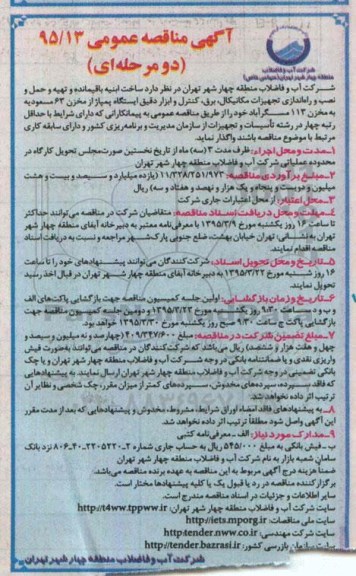 آگهی مناقصه عمومی ۹۵/۱۳
(دو مرحله‌ای)
شرکت آب و فاضلاب
منطقه چهار شهر تهران (سهامی خاص)
شرکت آب و فاضلاب منطقه چهار شهر تهران در نظر دارد ساخت ابنیه باقیمانده و تهیه و حمل و
نصب و راه‌اندازی تجهیزات مکانیکال، برق، کنترل و ابزار دقیق ایستگاه پمپاژ از مخزن ۶۳ مسعودیه
به مخزن ۱۱۳ مسگرآباد خود را از طریق مناقصه عمومی به پیمانکارانی که دارای شرایط با حداقل
رتبه چهار در رشته تأسیسات و تجهیزات از سازمان مدیریت و برنامه‌ریزی کشور و دارای سابقه کاری
مرتبط با موضوع مناقصه باشند واگذار نماید.
۱ـ مدت و محل اجراء: ظرف مدت ۳ (سه) ماه از تاریخ نخستین صورتمجلس تحویل کارگاه در
محدوده عملیاتی شرکت آب و فاضلاب منطقه چهار شهر تهران
۲ـ مبلغ برآوردی مناقصه: ۱۱/۳۲۸/۲۵۱/۹۷۳ (یازده میلیارد و سیصد و بیست و هشت
میلیون و دویست و پنجاه و یک هزار و نهصد و هفتاد و سه) ریال
۳ـ محل اعتبار: از محل اعتبارات جاری شرکت
۴ـ مهلت و محل دریافت اسناد مناقصه: متقاضیان شرکت در مناقصه می‌توانند حداکثر
تا ساعت ۱۶ روز یکشنبه مورخ ۱۳۹۵/۳/۹ با معرفی‌نامه معتبر به دبیرخانه آبفای منطقه چهار شهر
تهران به نشانی: تهران خیابان بهشت، ضلع جنوبی پارک‌شهر مراجعه و نسبت به دریافت اسناد
مناقصه اقدام نمایند.
۵ـ تاریخ و محل تحویل اسناد: شرکت‌کنندگان می‌توانند پیشنهادهای خود را تا ساعت
۱۶ روز شنبه مورخ ۱۳۹۵/۳/۲۲ به دبیرخانه آبفای منطقه چهار شهر تهران در قبال اخذ رسید
تحویل نمایند.
۶ـ تاریخ و زمان بازگشایی: اولین جلسه کمیسیون مناقصه جهت بازگشایی پاکت‌های الف
و ب و د ساعت ۹:۳۰ روز یکشنبه مورخ ۱۳۹۵/۳/۲۳ و دومین جلسه کمیسیون مناقصه جهت
بازگشایی پاکت ج ساعت ۹:۳۰ صبح روز یکشنبه مورخ ۱۳۹۵/۳/۳۰ خواهد بود.
۷ـ مبلغ تضمین شرکت در مناقصه: مبلغ ۴۰۹/۳۴۷/۶۰۰ (چهارصد و نه میلیون و سیصد و
چهل و هفت هزار و ششصد) ریال می‌باشد که شرکت‌کنندگان در مناقصه می‌توانند به‌صورت فیش
واریزی نقدی و یا ضمانتنامه بانکی در وجه شرکت آب و فاضلاب منطقه چهار شهر تهران و یا چک
بانکی تضمینی در وجه آبفای منطقه چهار شهر تهران ارسال نمایند. به پیشنهادهایی
که فاقد سپرده، سپرده‌های مخدوش، سپرده‌های کمتر از میزان مقرر، چک شخصی و نظایر آن
ترتیب اثر داده نخواهد شد.
۸ـ به پیشنهادهای فاقد امضاء اوراق شرایط، مشروط، مخدوش و پیشنهادهایی که بعد از مدت مقرر
این آگهی واصل شود مطلقاً ترتیب اثر داده نخواهد شد.
۹ـ مدارک مورد نیاز: الف ـ معرفی‌نامه کتبی
ب ـ فیش بانکی به مبلغ ۵۴۵/۰۰۰ ریال به حساب جاری شماره نزد بانک
سامان شعبه بازار به نام شرکت آب و فاضلاب منطقه چهار شهر تهران
ضمناً هزینه درج آگهی مربوط به این مناقصه به عهده برنده مناقصه می‌باشد.
برگزارکننده مناقصه در رد یا قبول یک یا کلیه پیشنهادها مختار است.
سایر اطلاعات و جزئیات در اسناد مناقصه مندرج است.
سایت شرکت آب و فاضلاب منطقه چهار شهر تهران: http://t4ww.tppww.ir
سایت ملی مناقصات: http://iets.mporg.ir
سایت شرکت مهندسی: http:tender.nww.co.ir
سایت سازمان بازرسی کشور: http://tender.bazrasi.ir
شرکت آب و فاضلاب منطقه چهار شهر تهران